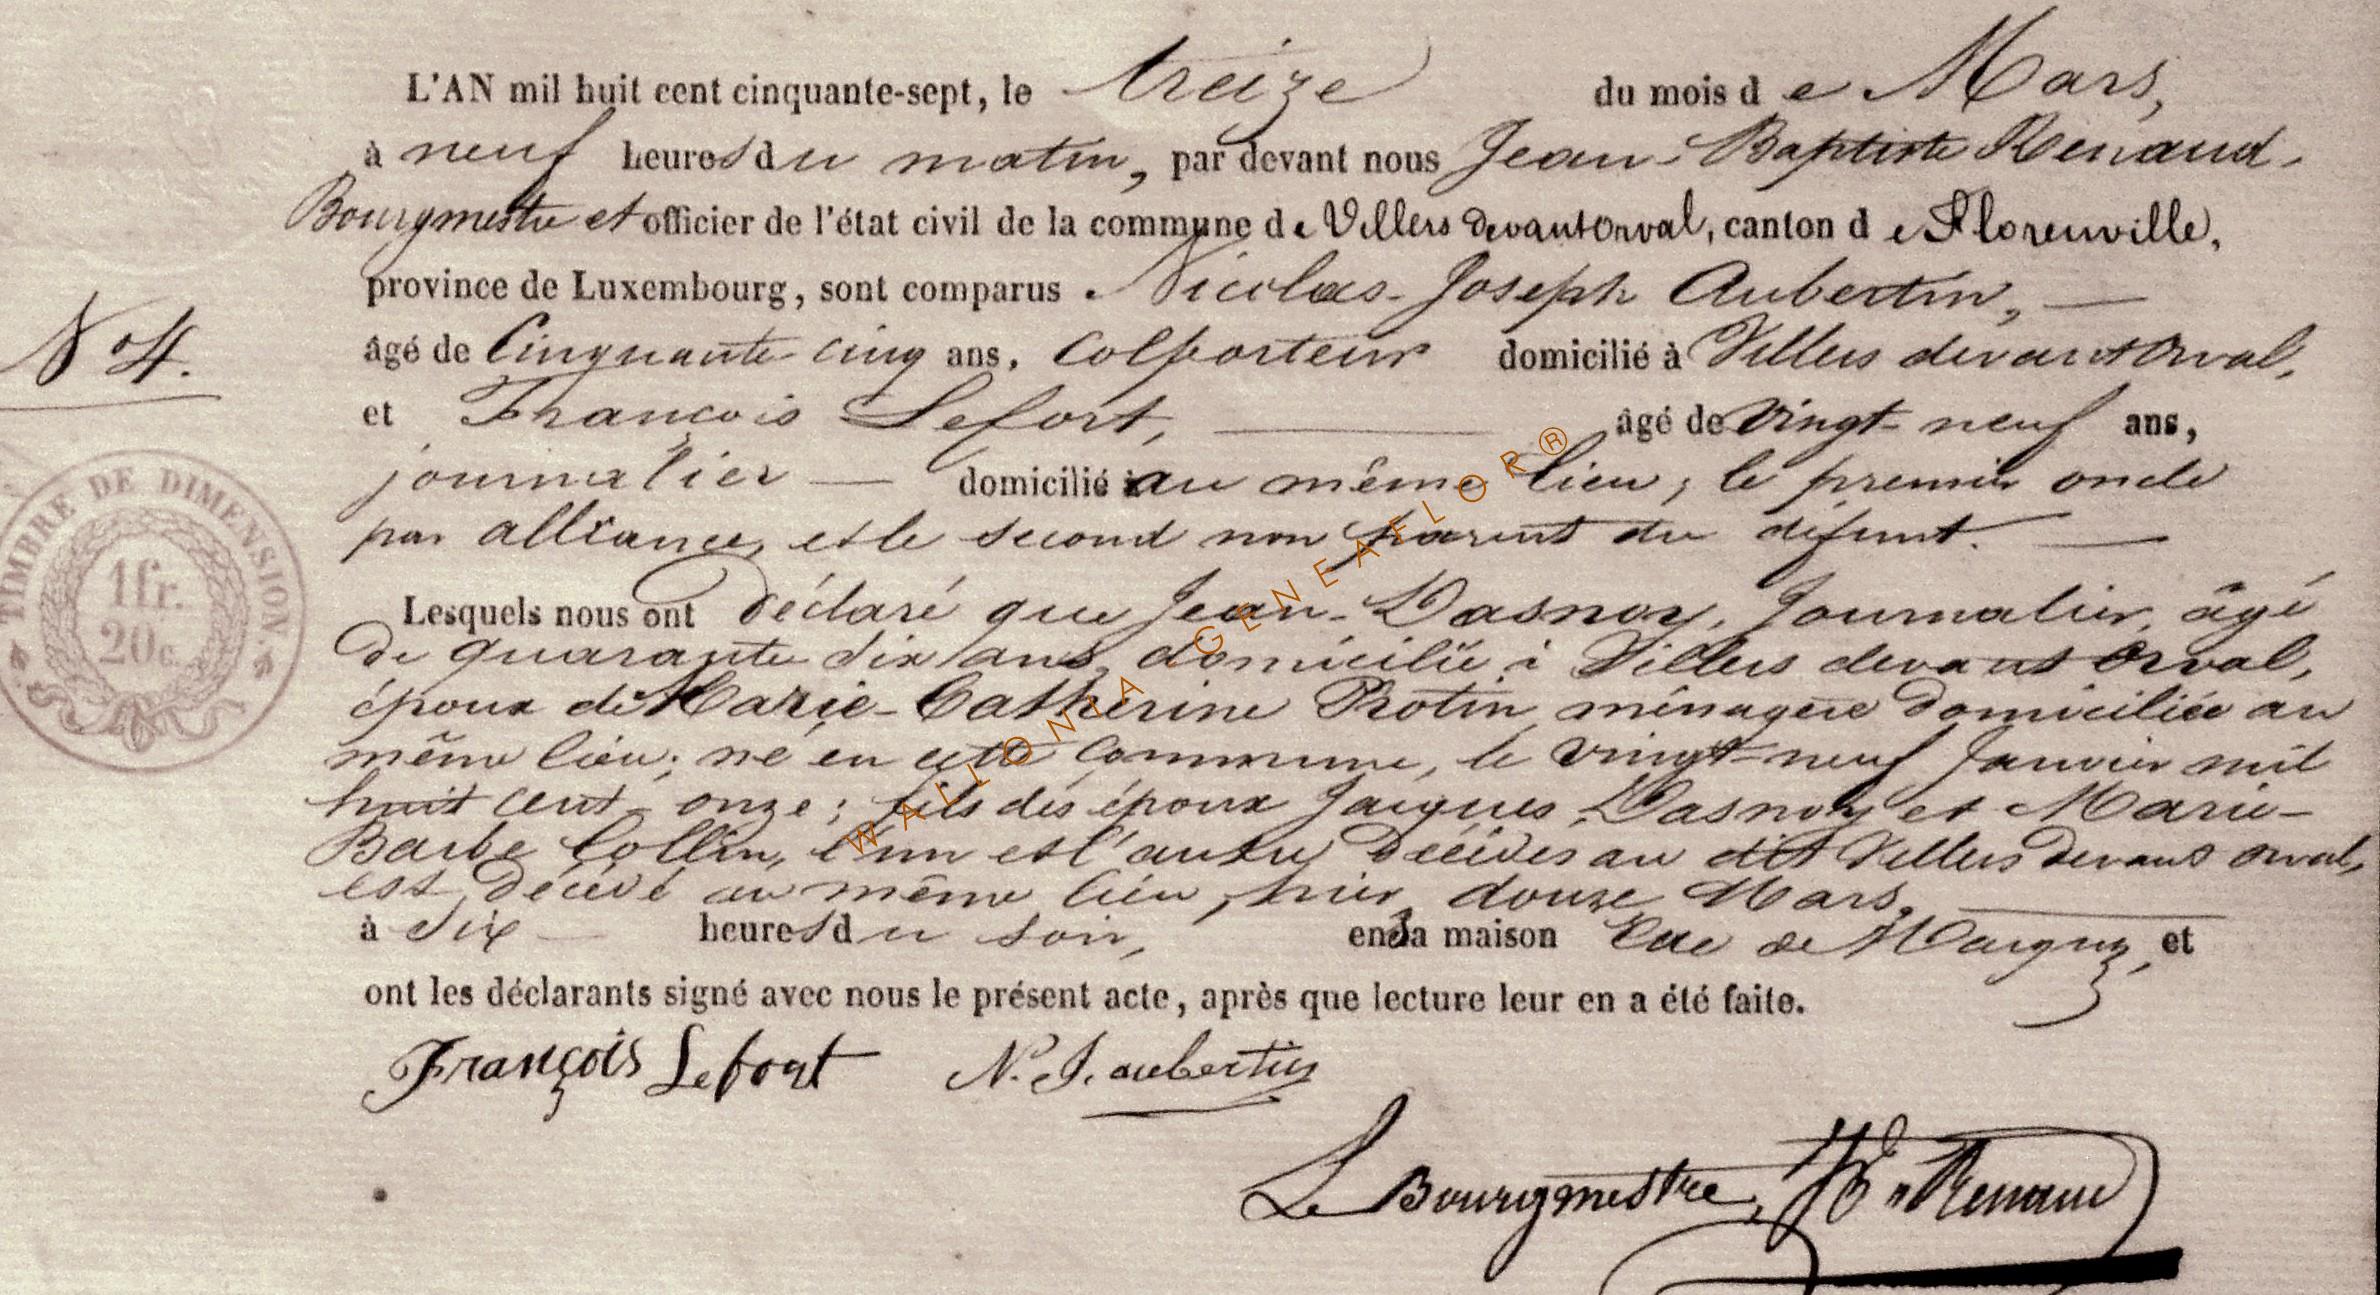 L'AN mil huit cent cinquante-sept, le treize du mois de Mars,
à neuf heures du matin, par devant nous Jean-Baptiste Renaud.
Bourgmestre et officier de l'état civil de la commune de Villers devant Orval, canton de Florenville,
province de Luxembourg, sont comparus Nicolas-Joseph Aubertin,
âgé de Cinquante cinq ans, Colporteur domicilié à Villers devant Orval,
N° 4.
et François Lefort, âgé de vingt-neuf ans,
journalier domicilié au même lieu; le premier oncle
par alliance, et le second non parent du défunt.
TIMBRE DE DIMENSION.
1fr.
20c.
Lesquels nous ont déclaré que Jean-Dasnoy, Journalier, âgé
de quarante six ans, domicilié à Villers devant Orval,
époux de Marie-Catherine Rotin ménagère domiciliée au
même lieu; né en cette Commune, le vingt-neuf Janvier mil
huit cent-onze; fils des époux Jacques Dasnoy et Marie-
Barbe Collin, l'un et l'autre décédés au dit Villers devant Orval,
est décédé au même lieu, hier douze Mars,
à Six heures du soir, en sa maison Rue de et
ont les déclarants signé avec nous le présent acte, après que lecture leur en a été faite.
François Lefort N. J. aubertin
Le Bourgmestre, Renaud
WALLONIA GENEAFLOR®